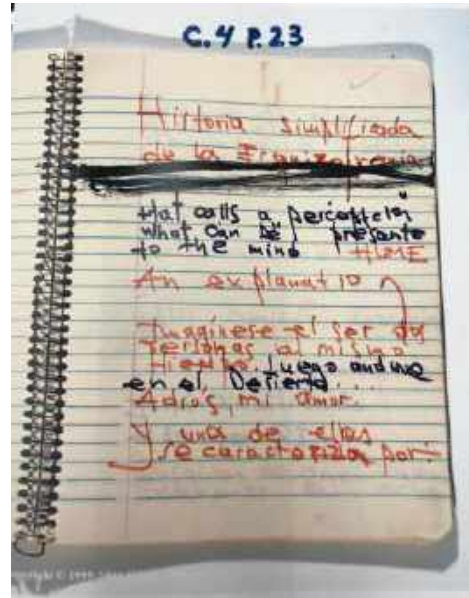 C.4 P.23
Historia Simplificada
de la Esquizofrenia
that calls a perception
what can be presente
to the mind HUME
An explanatio
Imagínese el ser dos
personas al mismo
tiempo. Luego anduve
en el Desierto...
Adiós, mi amor.
Y una de ellas
se caracteriza por: